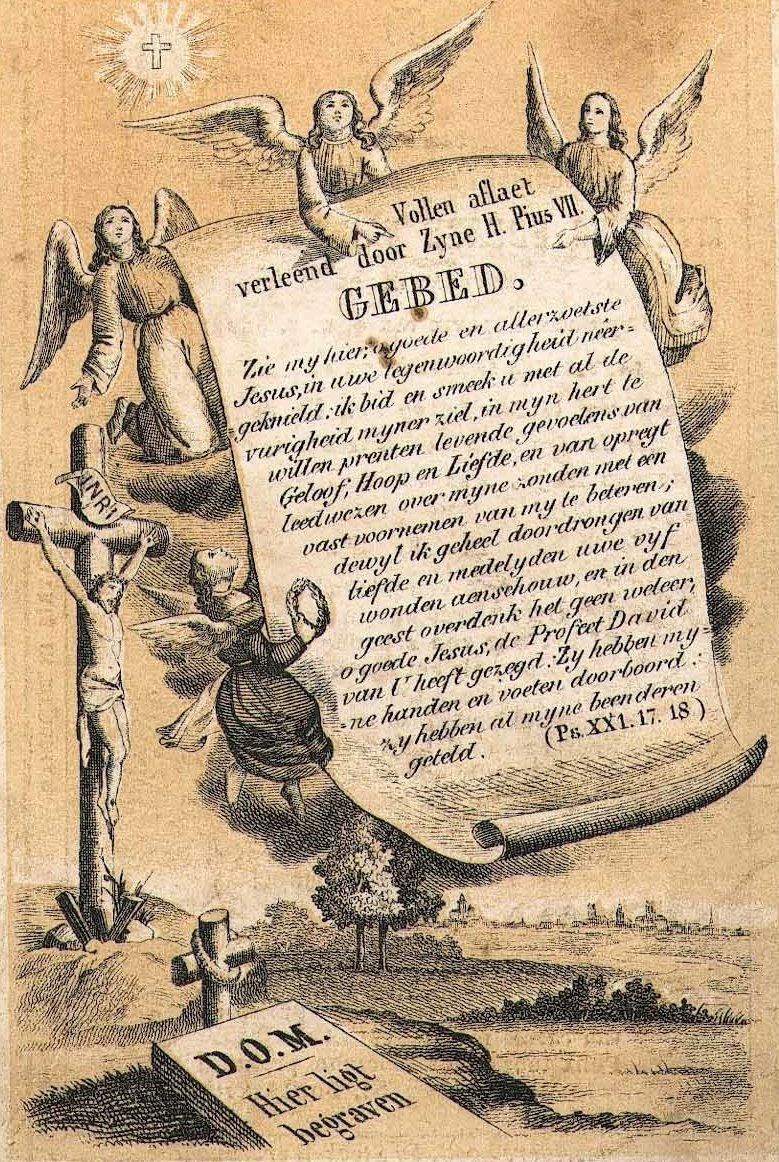 Vollen aflaet
verleend door Zyne H. Pius VII.
GEBED.
Zie my hier, o goede en allerzoetste
Jesus, in uwe tegenwoordigheid neêr=
=geknield: ik bid en smeek u met al de
vurigheid myner ziel, in myn hert te
willen prenten levende gevoelens van
Geloof, Hoop en Liefde, en van opregt
leedwezen over myne zonden met een
vast voornemen van my te beteren;
dewyl ik geheel doordrongen van
liefde en medelyden uwe vyf
wonden aenschouw, en in den
geest overdenk het geen weleer,
o goede Jesus, de Profeet David
van U heeft gezegd: Zy hebben my=
=ne handen en voeten doorboord:
zy hebben al myne beenderen
geteld. (Ps. XXI. 17. 18)
INRI
D.O.M.
Hier ligt
begraven